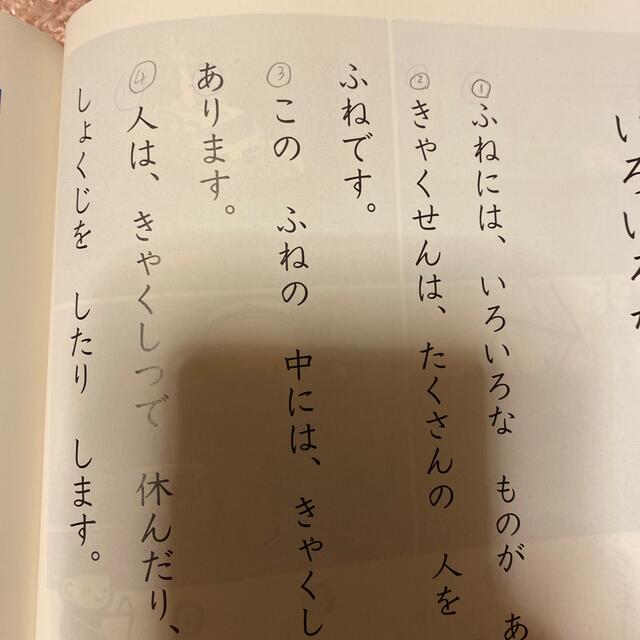 いろいろな
①ふねには、いろいろな ものが あ
②きゃくせんは、たくさんの 人を
ふねです。
③この ふねの 中には、きゃくし
あります。
④人は、きゃくしつで 休んだり、
しょくじを したり します。